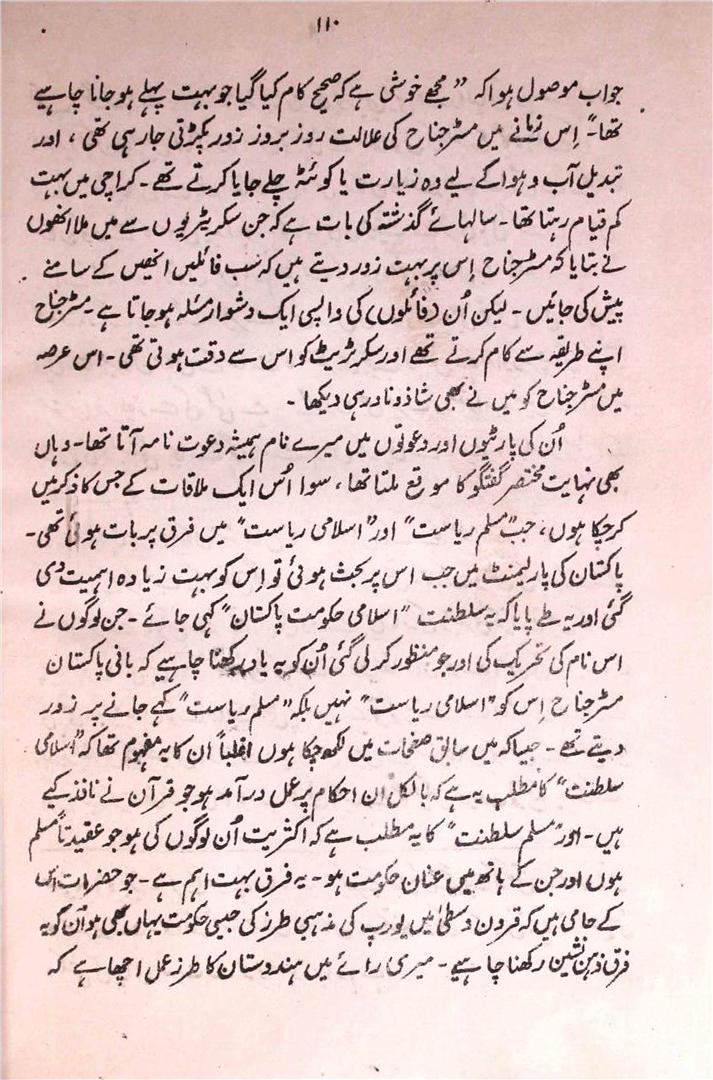 ۱۱۰
جواب موصول ہوا کہ "مجھے خوشی ہے کہ صحیح کام کیا گیا جو بہت پہلے ہو جانا چاہیے
تھا۔" اِس زمانے میں مسٹر جناح کی علالت روز بروز زور پکڑتی جا رہی تھی، اور
تبدیل آب و ہوا کے لیے وہ زیارت یا کوئٹہ چلے جایا کرتے تھے۔ کراچی میں بہت
کم قیام رہتا تھا۔ سالہائے گذشتہ کی بات ہے کہ جن سکریٹریوں سے میں ملا انھوں
نے بتایا کہ مسٹر جناح اِس پر بہت زور دیتے ہیں کہ سب فائلیں انھیں کے سامنے
پیش کی جائیں۔ لیکن اُن (فائلوں) کی واپسی ایک دشوار مسئلہ ہو جاتا ہے۔ مسٹر جناح
اپنے طریقہ سے کام کرتے تھے اور سکرٹریٹ کو اس سے دقت ہوتی تھی۔ اس عرصہ
میں مسٹر جناح کو میں نے بھی شاذ و نادر ہی دیکھا۔
اُن کی پارٹیوں اور دعوتوں میں میرے نام ہمیشہ دعوت نامہ آتا تھا۔ وہاں
بھی نہایت مختصر گفتگو کا موقع ملتا تھا، سوا اُس ایک ملاقات کے جس کا ذکر میں
کر چکا ہوں، جب "مسلم ریاست" اور "اسلامی ریاست" میں فرق پر بات ہوئی تھی۔
پاکستان کی پارلیمنٹ میں جب اس پر بحث ہوئی تو اِس کو بہت زیادہ اہمیت دی
گئی اور یہ طے پایا کہ یہ سلطنت "اسلامی حکومت پاکستان" کہی جائے۔ جن لوگوں نے
اس نام کی تحریک کی اور جو منظور کر لی گئی اُن کو یہ یاد رکھنا چاہیے کہ بانی پاکستان
مسٹر جناح اِس کو "اسلامی ریاست" نہیں بلکہ "مسلم ریاست" کہے جانے پر زور
دیتے تھے۔ جیسا کہ میں سابق صفحات میں لکھ چکا ہوں اغلباً ان کا یہ مفہوم تھا کہ "اسلامی
سلطنت" کا مطلب یہ ہے کہ بالکل ان احکام پر عمل درآمد ہو جو قرآن نے نافذ کیے
ہیں۔ اور "مسلم سلطنت" کا یہ مطلب ہے کہ اکثریت اُن لوگوں کی ہو جو عقیدتاً مسلم
ہوں اور جن کے ہاتھ میں عنان حکومت ہو۔ یہ فرق بہت اہم ہے۔ جو حضرات اس
کے حامی ہیں کہ قرون وسطیٰ میں یورپ کی مذہبی طرز کی جیسی حکومت یہاں بھی ہو اُن کو یہ
فرق ذہن نشین رکھنا چاہیے۔ میری رائے میں ہندوستان کا طرز عمل اچھا ہے کہ